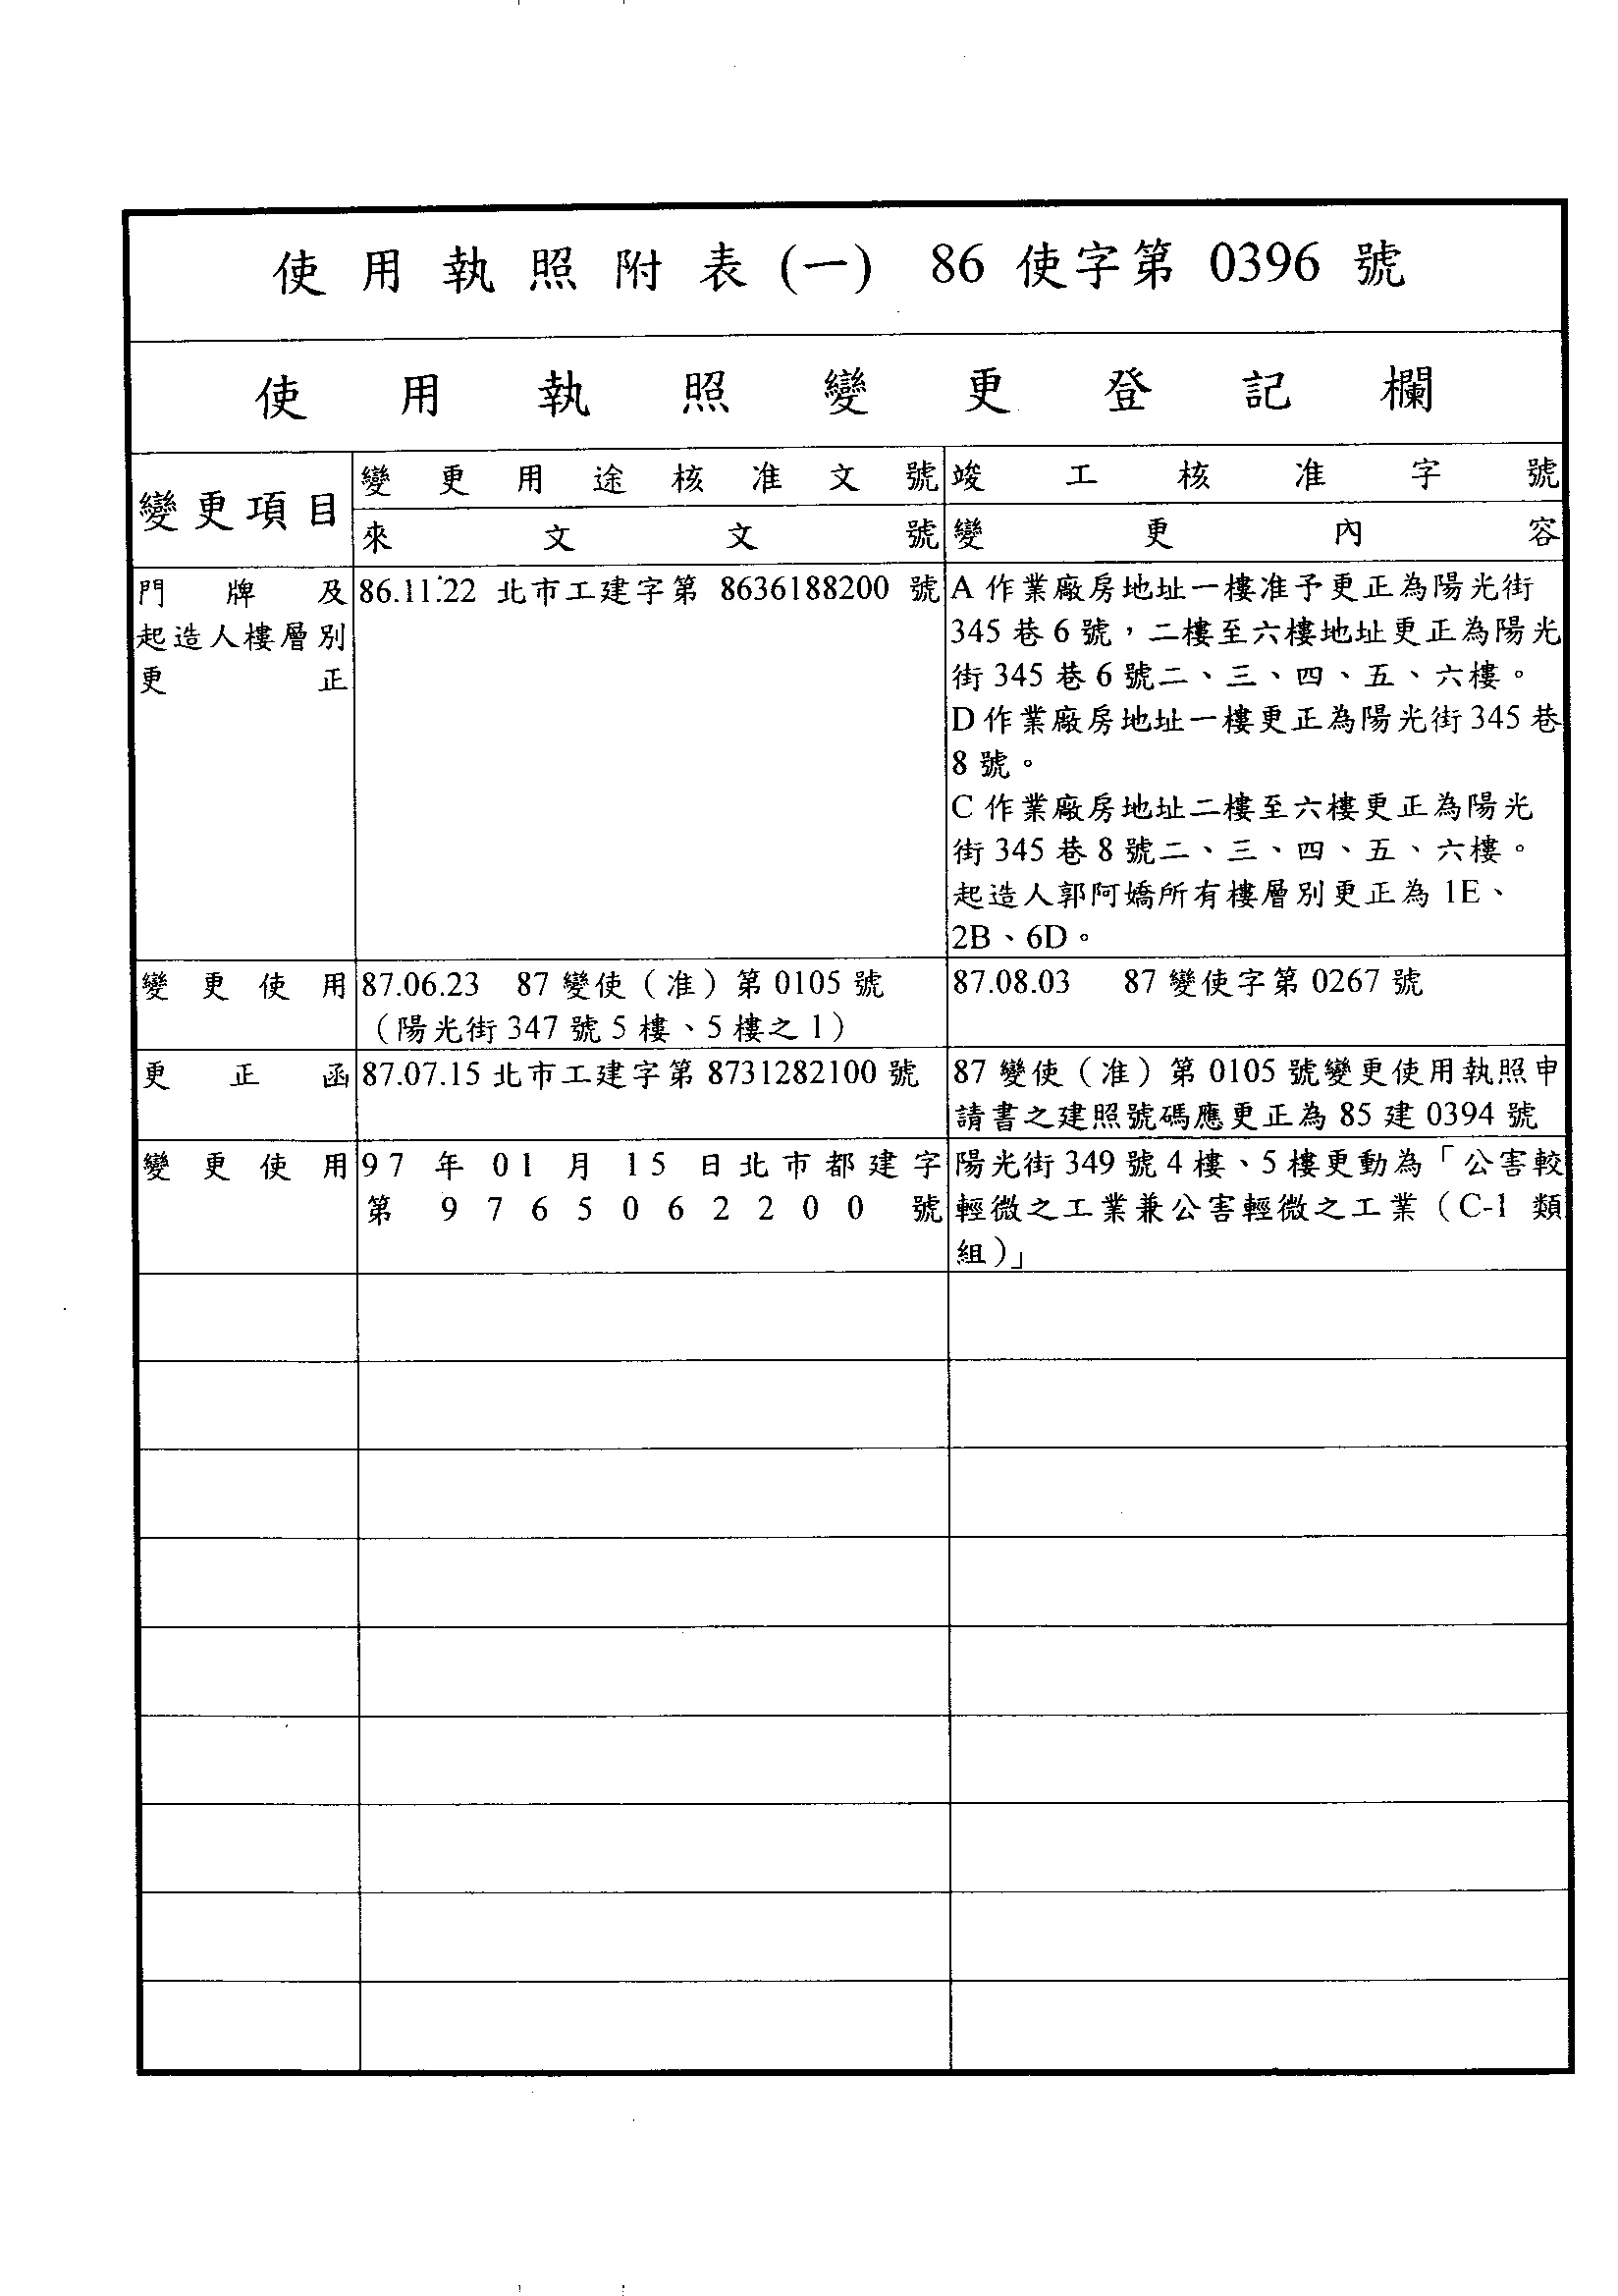 使用執照附表(一) 86 使字第 0396 號
使用執照變更登記欄
變更項目
變更用途核准文號
竣工核准字號
來文文號
變更內容
門牌及
起造人樓層別
更正
86.11.22 北市工建字第 8636188200 號
A 作業廠房地址一樓准予更正為陽光街
345 巷 6 號，二樓至六樓地址更正為陽光
街 345 巷 6 號二、三、四、五、六樓。
D 作業廠房地址一樓更正為陽光街 345 巷
8 號。
C 作業廠房地址二樓至六樓更正為陽光
街 345 巷 8 號二、三、四、五、六樓。
起造人郭阿嬌所有樓層別更正為 1E、
2B、6D。
變更使用
87.06.23 87 變使（准）第 0105 號
（陽光街 347 號 5 樓、5 樓之 1）
87.08.03 87 變使字第 0267 號
更正函
87.07.15 北市工建字第 8731282100 號
87 變使（准）第 0105 號變更使用執照申
請書之建照號碼應更正為 85 建 0394 號
變更使用
97 年 01 月 15 日北市都建字
第 9765062200 號
陽光街 349 號 4 樓、5 樓更動為「公害較
輕微之工業兼公害輕微之工業（C-1 類
組）」